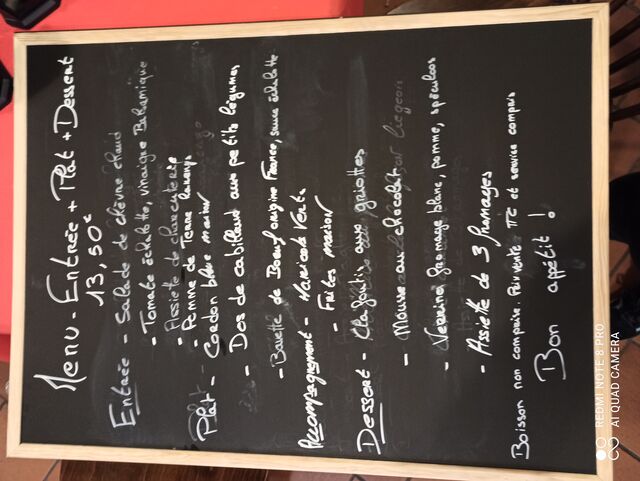 Menu - Entrée + Plat + Dessert
13,50€
Entrée - Salade de chèvre chaud
- Tomate échalotte, vinaigre Balsamique
- Assiette de charcuterie
- Pomme de Terre
Plat - Cordon bleu maison
- Dos de cabillaud aux petits légumes
- Bavette de Boeuf origine France, sauce échalotte
Accompagnement - Haricots Verts
- Frites maison
Dessert - Clafoutis aux griottes
- Mousse au chocolat
- Verrine fromage blanc, pomme, spéculoos
- Assiette de 3 fromages
Boisson non comprise. Prix vente TTC et service compris
Bon appétit !
REDMI NOTE 8 PRO
AI QUAD CAMERA